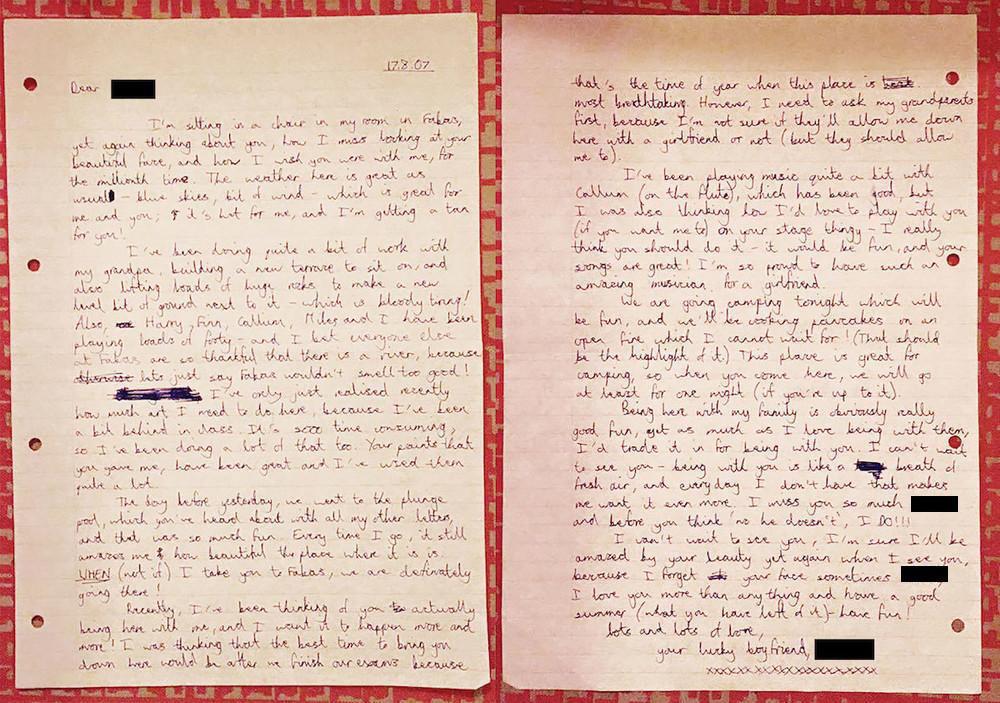 17.8.07
Dear
I'm sitting in a chair in my room in Fakas,
yet again thinking about you, how I miss looking at your
beautiful face, and how I wish you were with me, for
the millionth time. The weather here is great as
usual - blue skies, bit of wind - which is great for
me and you; it's hot for me, and I'm getting a tan
for you!
I've been doing quite a bit of work with
my grandpa, building a new terrace to sit on, and
also lifting loads of huge rocks to make a new
level bit of ground next to it - which is bloody tiring!
Also, Harry, Finn, Callum, Miles and I have been
playing loads of forty - and I bet everyone else
at Fakas are so thankful that there is a river, because
otherwise lets just say Fakas wouldn't smell too good!
I've only just realised recently
how much art I need to do here, because I've been
a bit behind in class. It's sooo time consuming,
so I've been doing a lot of that too. Your paints that
you gave me, have been great and I've used them
quite a lot.
The day before yesterday, we went to the plunge
pool, which you've heard about with all my other letters,
and that was so much fun. Every time I go, it still
amazes me how beautiful the place where it is is.
WHEN (not if) I take you to Fakas, we are definately
going there!
Recently, I've been thinking of you actually
being here with me, and I want it to happen more and
more! I was thinking that the best time to bring you
down here would be after we finish our exams because
that's the time of year when this place is
most breathtaking. However, I need to ask my grandparents
first, because I'm not sure if they'll allow me down
here with a girlfriend or not (but they should allow
me to).
I've been playing music quite a bit with
Callum (on the flute), which has been good, but
I was also thinking how I'd love to play with you
(if you want me to) on your stage thingy - I really
think you should do it - it would be fun, and your
songs are great! I'm so proud to have such an
amazing musician for a girlfriend.
We are going camping tonight which will
be fun, and we'll be cooking pancakes on an
open fire which I cannot wait for! (That should
be the highlight of it.) This place is great for
camping, so when you come here, we will go
at least for one night (if you're up to it).
Being here with my family is obviously really
good fun, yet as much as I love being with them,
I'd trade it in for being with you. I can't wait
to see you - being with you is like a breath of
fresh air, and everyday I don't have that makes
me want it even more. I miss you so much
and before you think 'no he doesn't', I DO!!!
I can't want to see you, I'm sure I'll be
amazed by your beauty yet again when I see you,
because I forget your face sometimes
I love you more than anything and have a good
summer (what you have left of it) - have fun!
lots and lots of love,
your lucky boyfriend,
xxxxxxxxxxxxxxxxx